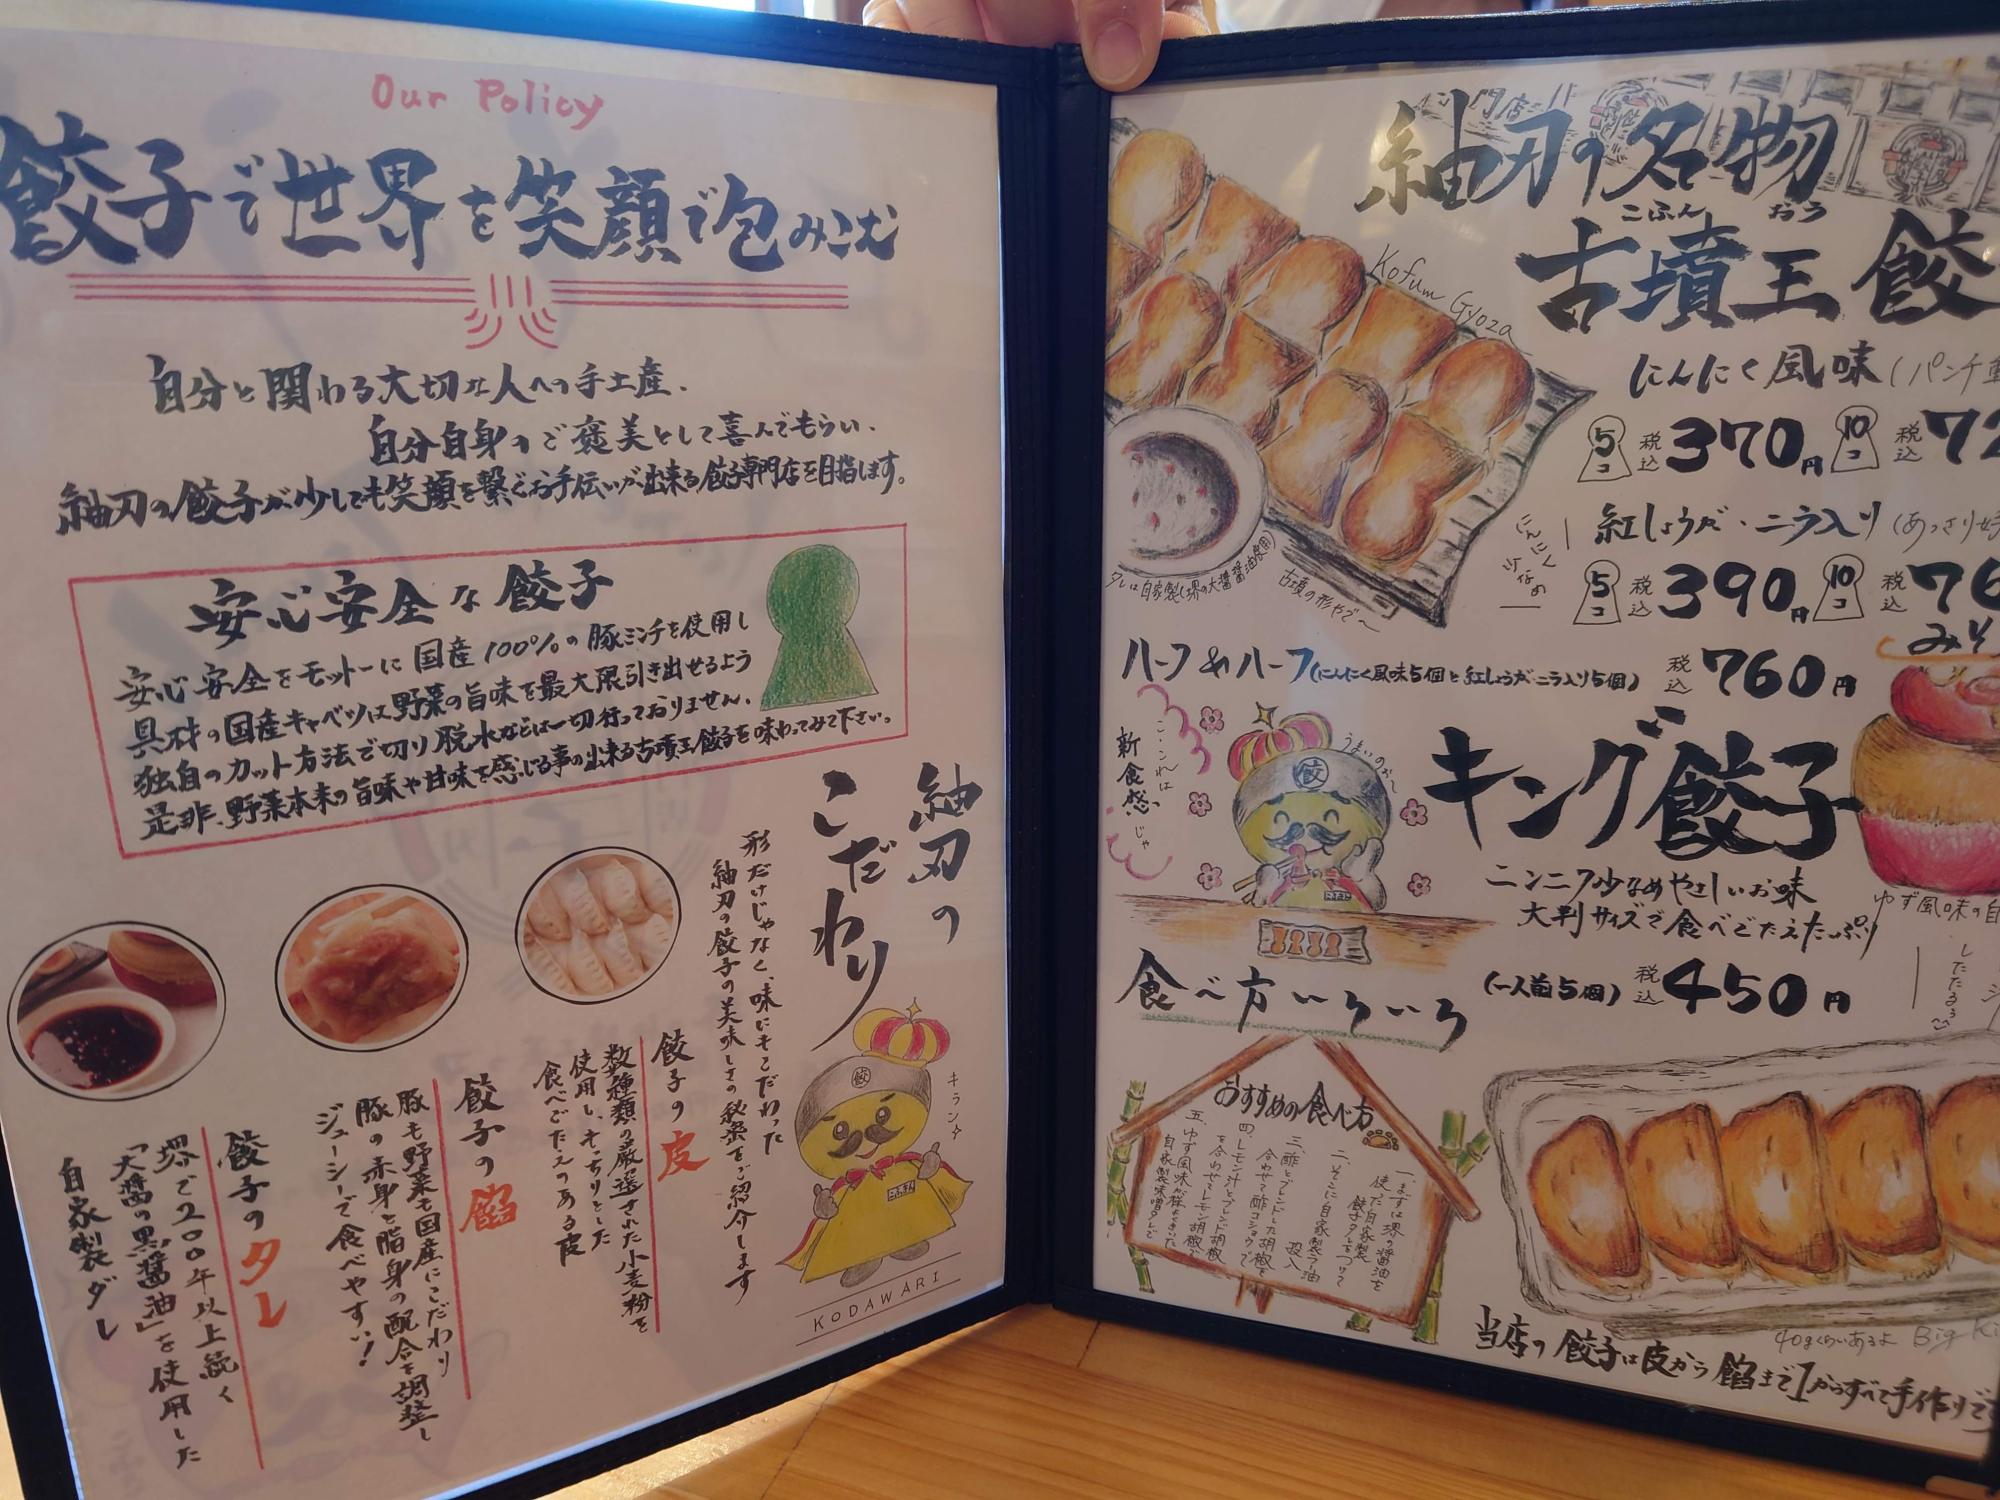 Our Policy
餃子で世界を笑顔で包みこむ
自分と関わる大切な人への手土産、
自分自身のご褒美として喜んでもらい、
紬刃の餃子が少しでも笑顔を繋ぐお手伝いが出来る餃子専門店を目指します。
安心安全な餃子
安心安全をモットーに国産100%の豚ミンチを使用し
具材の国産キャベツは野菜の旨味を最大限引き出せるよう
独自のカット方法で切り脱水などは一切行っておりません。
是非、野菜本来の旨味や甘味を感じる事の出来る古墳王餃子を味わってみて下さい。
紬刃の
こだわり
形だけじゃなく、味にもこだわった
紬刃の餃子の美味しさの秘密をご紹介します
餃子の皮
数種類の厳選された小麦粉を
使用し、もっちりとした
食べごたえのある皮
餃子の餡
豚も野菜も国産にこだわり
豚の赤身と脂身の配合を調整し
ジューシーで食べやすい!
餃子のタレ
堺で200年以上続く
「大醤の黒醤油」を使用した
自家製ダレ
餃
キラン
こふきん
KODAWARI
紬刃の名物
こふん おう
古墳王餃
Kofum Gyoza
にんにく風味(パンチ
5コ 税込370円 10コ 税込72
紅しょうが・ニラ入り(あっさり
にんにく
少なめ
5コ 税込390円 10コ 税込76
タレは自家製(堺の大醤醤油使用)
古墳の形やで〜
ハーフ&ハーフ(にんにく風味5個と紅しょうがニラ入り5個) 税込760円
みそ
こ・これは
新食感
じゃ
うまいのぉ〜
餃
キング餃子
ニンニク少なめやさしいお味
大判サイズで食べごたえたっぷり
ゆず風味の自
(一人前5個) 税込450円
したたるぅ
食べ方いろいろ
おすすめの食べ方
一、まずは堺の醤油を
使った自家製
餃子タレをつけて
二、そこに自家製ラー油
投入
三、酢とブレンドした胡椒を
合わせて酢コショウで
四、レモン汁とブレンド胡椒
を合わせてレモン胡椒
五、ゆず風味が
自家製味噌タレで
40gくらいあるよ Big Ki
当店の餃子は皮から餡まで1からすべて手作りで